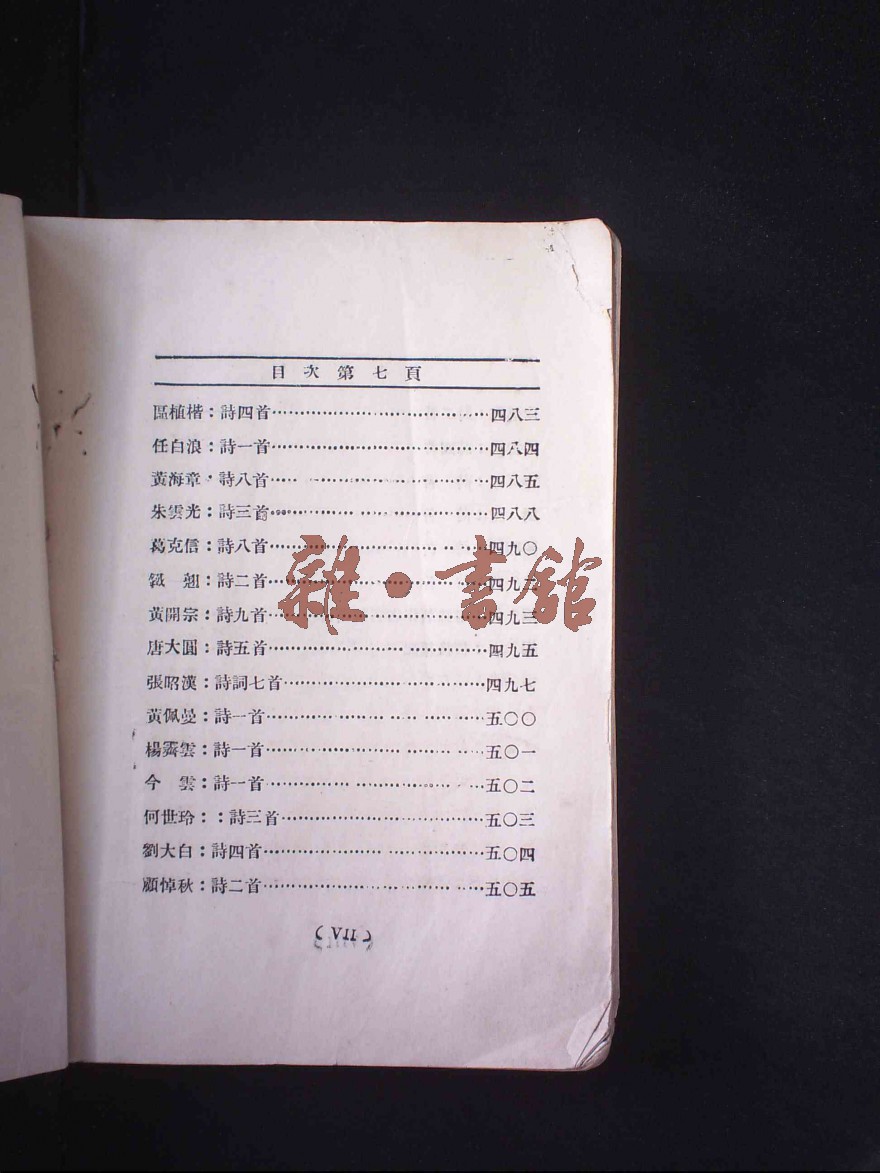 目次第七頁
區植楷：詩四首……四八三
任白浪：詩一首……四八四
黃海章：詩八首……四八五
朱雲光：詩三首……四八八
葛克信：詩八首……四九〇
翹：詩二首……四九二
黃開宗：詩九首……四九三
唐大圓：詩五首……四九五
張昭漢：詩詞七首……四九七
黃佩曼：詩一首……五〇〇
楊霽雲：詩一首……五〇一
今雲：詩一首……五〇二
何世玲：：詩三首……五〇三
劉大白：詩四首……五〇四
顧悼秋：詩二首……五〇五
( VII )
雜·書館